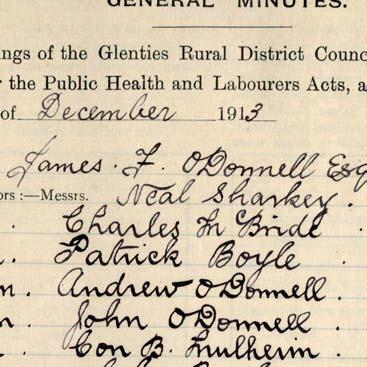 GENERAL MINUTES.
ings of the Glenties Rural District Counc
r the Public Health and Labourers Acts, a
of December 1913
James. F. O'Donnell Esq
ors :—Messrs. Neal Sharkey.
Charles McBride
Patrick Boyle
n. Andrew O'Donnell.
n. John O'Donnell.
Con B. Mulherin.